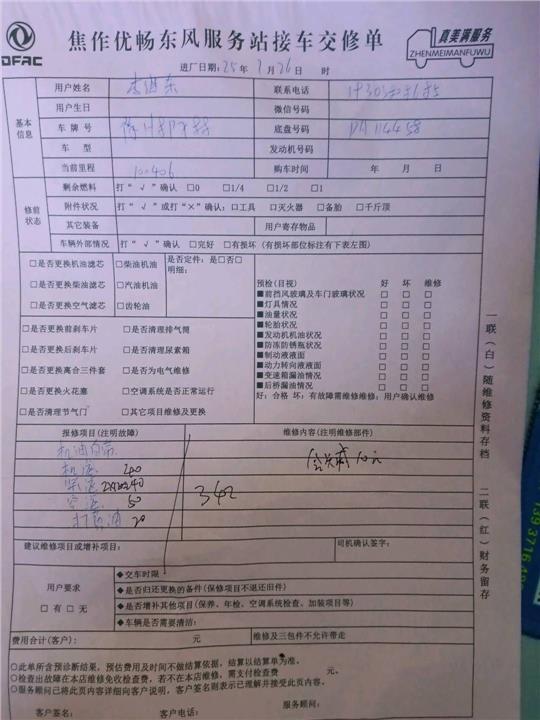 DFAC
焦作优畅东风服务站接车交修单
真美满服务
ZHENMEIMANFUWU
进厂日期:25年7月26日 时
基本信息
用户姓名 联系电话
用户生日 微信号码
车牌号 底盘号码 DA114458
车型 发动机号码
当前里程 100406 购车时间 年 月 日
修前状态
剩余燃料 打“√”确认 □0 □1/4 □1/2 □1
附件状况 打“√”或打“×”确认:□工具 □灭火器 □备胎 □千斤顶
其它装备 用户寄存物品
车辆外部情况 打“√”确认 □完好 □有损坏(有损坏部位标注有下表左图)
□是否更换机油滤芯 □柴油机油 是否定件:是□否□
明细:
□是否更换柴油滤芯 □汽油机油
□是否更换空气滤芯 □齿轮油
预检(目视) 好 坏 维修
■前挡风玻璃及车门玻璃状况 □ □ □
■灯具情况 □ □ □
■油量状况 □ □ □
■轮胎状况 □ □ □
■发动机机油状况 □ □ □
■防冻防锈瓶状况 □ □ □
■制动液液面 □ □ □
■动力转向液液面 □ □ □
■变速箱漏油情况 □ □ □
■后桥漏油情况 □ □ □
好:合格 坏:有故障需维修维修:用户确认维修
□是否更换前刹车片 □是否清理排气筒
□是否更换后刹车片 □是否清理尿素箱
□是否更换离合三件套 □是否为电气维修
□是否更换火花塞 □空调系统是否正常运行
□是否清理节气门 □其它项目维修及更换
报修项目(注明故障) 维修内容(注明维修部件)
机油自带
机滤 40
柴滤 40
空滤 50
打黄油 20
342
建议维修项目或增补项目: 司机确认签字:
用户要求
□有 □无
◆交车时限:
◆是否归还更换的备件(保修项目不退还旧件)
◆是否增补其他项目(保养、年检、空调系统检查、加装项目等)
◆车辆是否需要清洁:
费用合计(客户): 元 维修及三包件不允许带走
○此单所含预诊断结果,预估费用及时间不做结算依据,结算以结算单为准。
○检查出故障在本店维修免收检查费,若不在本店维修,需支付检查费 元。
○服务顾问已将此页内容详细向客户说明,客户签名则表示已理解并接受此页内容。
客户签名: 客户电话: 服务顾问:
一联(白)随维修资料存档
二联(红)财务留存